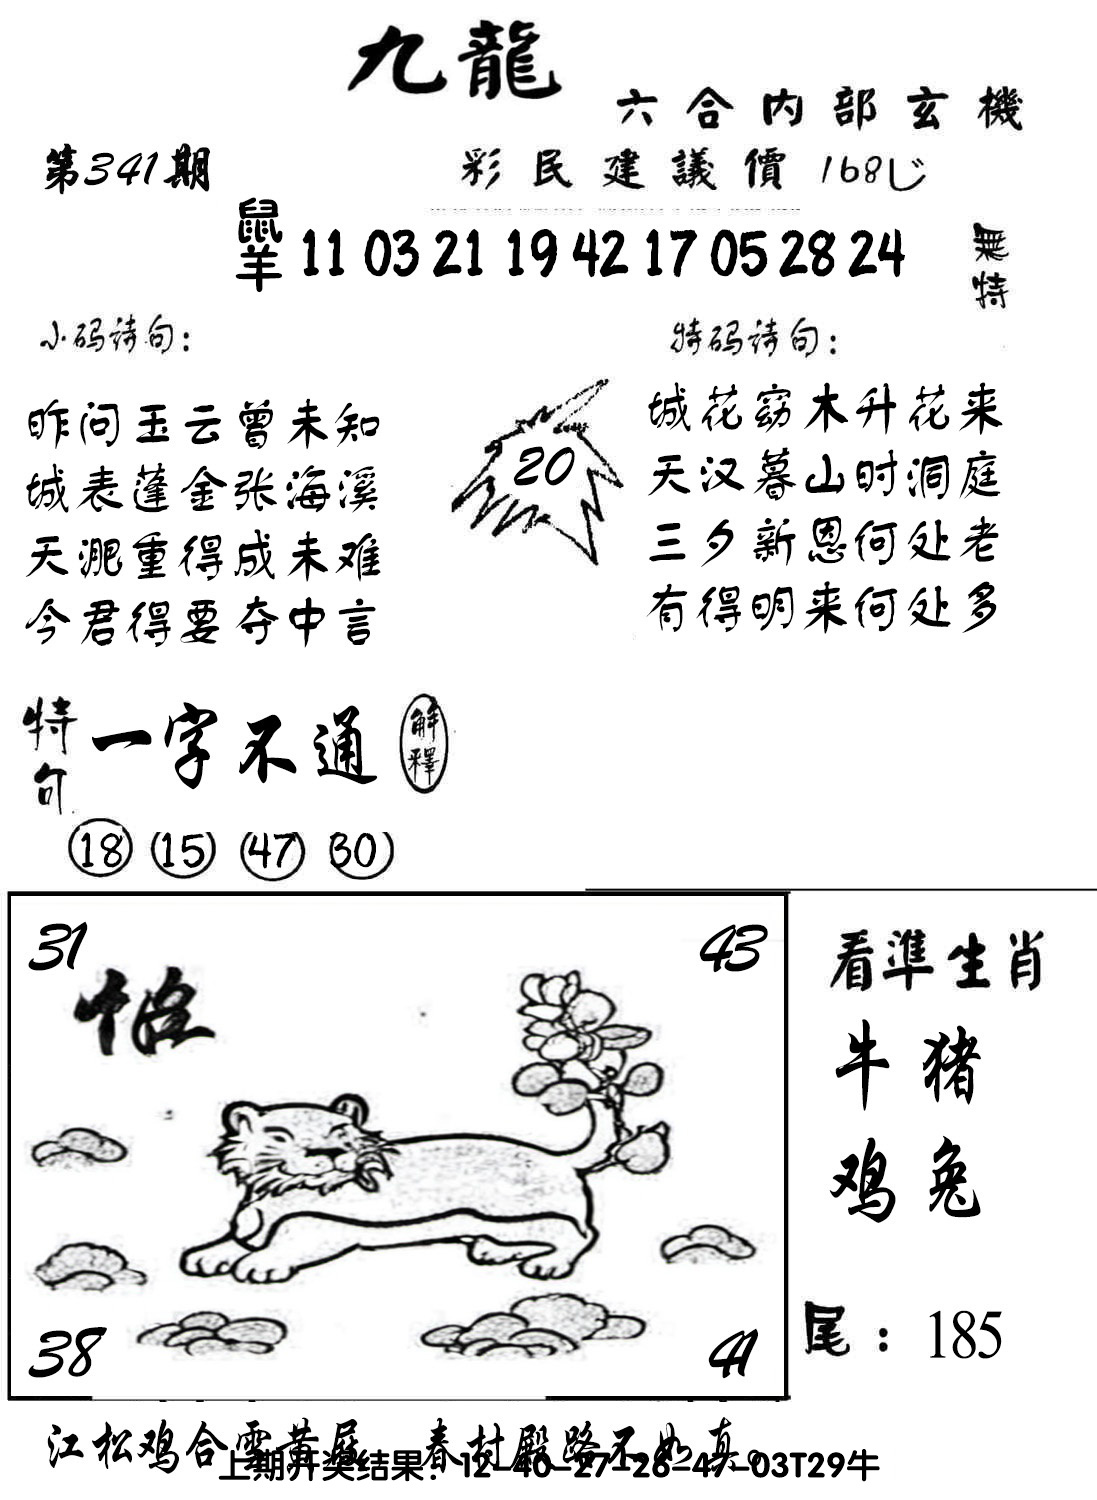 九龍
六合内部玄機
第341期
彩民建議價168
鼠羊 11 03 21 19 42 17 05 28 24
無特
小码诗句：
昨问玉云曾未知
城表蓬金张海溪
天淝重得成未难
今君得要夺中言
20
特码诗句：
城花窈木升花来
天汉暮山时洞庭
三夕新恩何处老
有得明来何处多
特句 一字不通 解释
18 15 47 30
31
43
38
41
看準生肖
牛 猪
鸡 兔
尾：185
江松鸡合雪黄屋 春村殿路不如真。
上期开奖结果：12-40-27-26-47-03T29牛